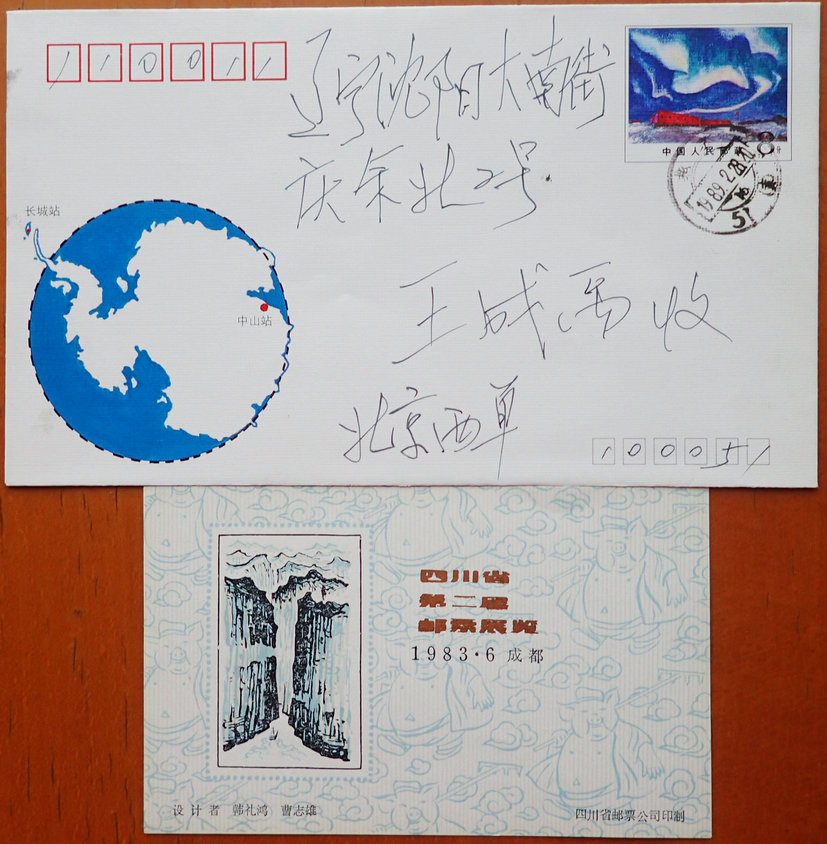 110011
辽宁沈阳大南街
庆余北2号
中国人民邮政
1989.2.28.12
51
长城站
中山站
王成
收
北京西单
100051
四川省
第二届
邮票展览
1983·6 成都
设计者 韩礼鸿 曹志雄
四川省邮票公司印制